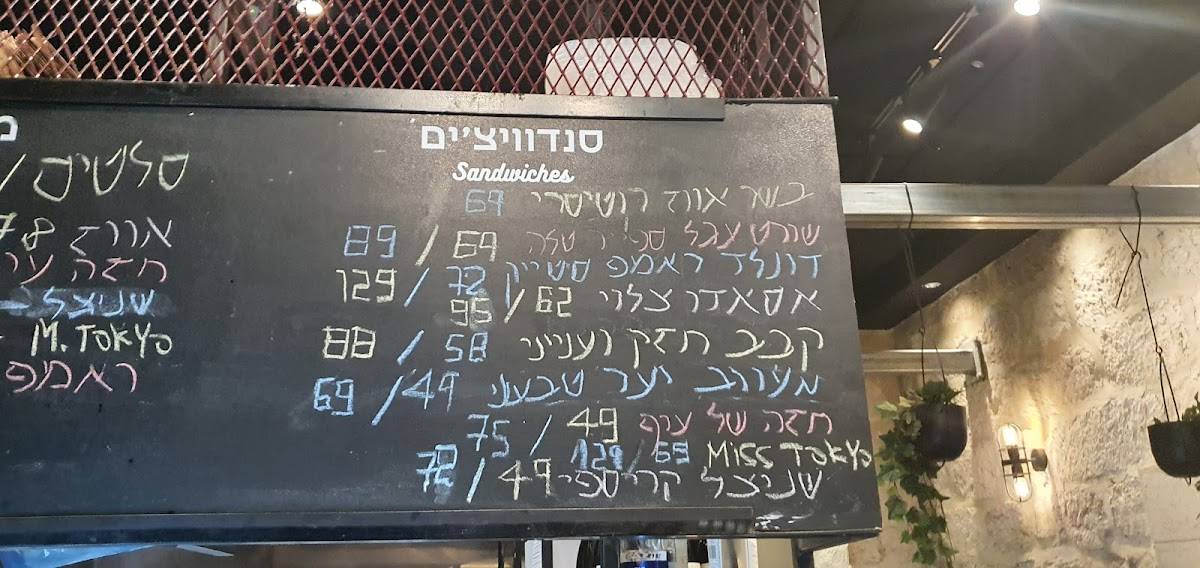 סנדוויצ'ים
Sandwiches
בשר אווז רוטיסרי 69
שורט עגל ספייר טלה 69 / 89
דונלד ראמפ סטייק 72 / 129
אסאדו צלוי 62 / 95
קבב חזק ועניני 58 / 88
מעורב יער טבעוני 49 / 69
חזה של עוף 49 / 75
Miss Tokyo 69 / 129
שניצל קריספי 49 / 72
סלטים /
אווז 78
חזה עו
שניצל
M. Tokyo
ראמפ